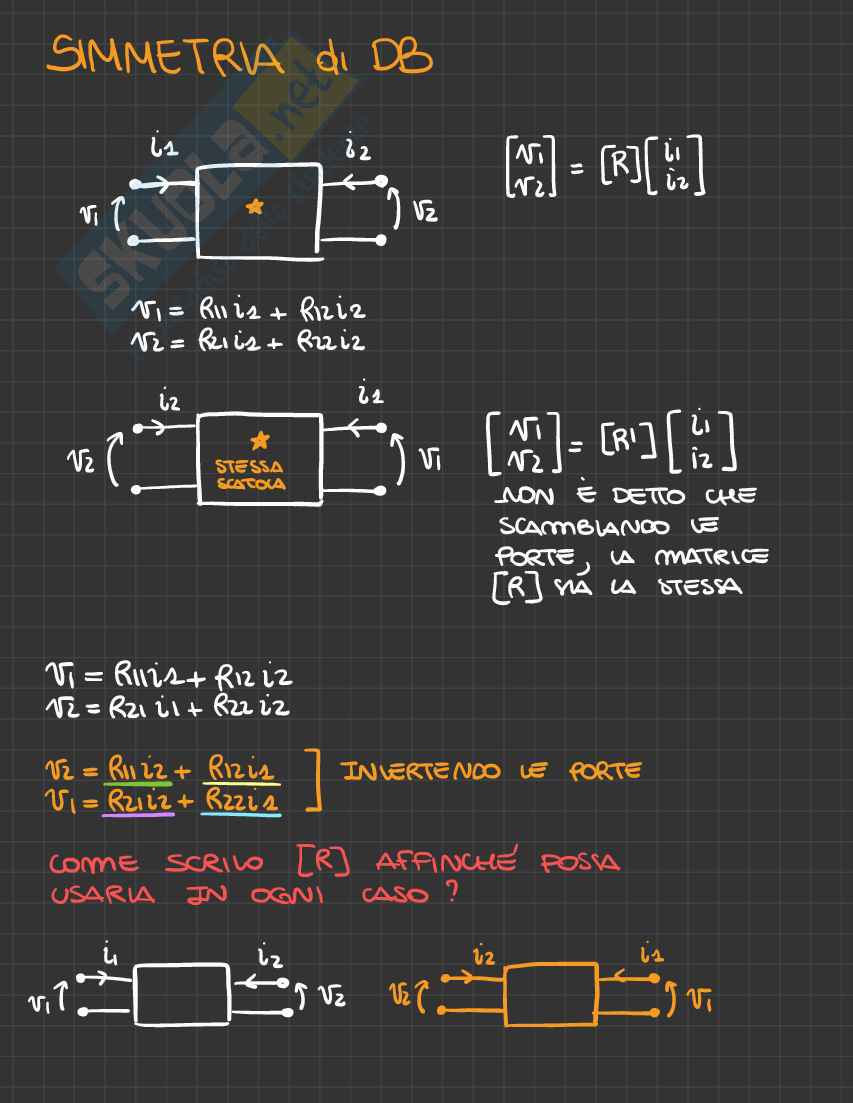 SIMMETRIA di DB
SKUOLA.net
i1 i2
v1 v2
[v1 v2] = [R] [i1 i2]
v1 = R11i1 + R12i2
v2 = R21i1 + R22i2
i2 i1
v2 v1
STESSA
SCATOLA
[v1 v2] = [R'] [i1 i2]
NON È DETTO CHE
SCAMBIANDO LE
PORTE, LA MATRICE
[R] SIA LA STESSA
v1 = R11i1 + R12i2
v2 = R21i1 + R22i2
v2 = R11i2 + R12i1
v1 = R21i2 + R22i1
INVERTENDO LE PORTE
COME SCRIVO [R] AFFINCHÉ POSSA
USARLA IN OGNI CASO?
i1 i2 i2 i1
v1 v2 v2 v1